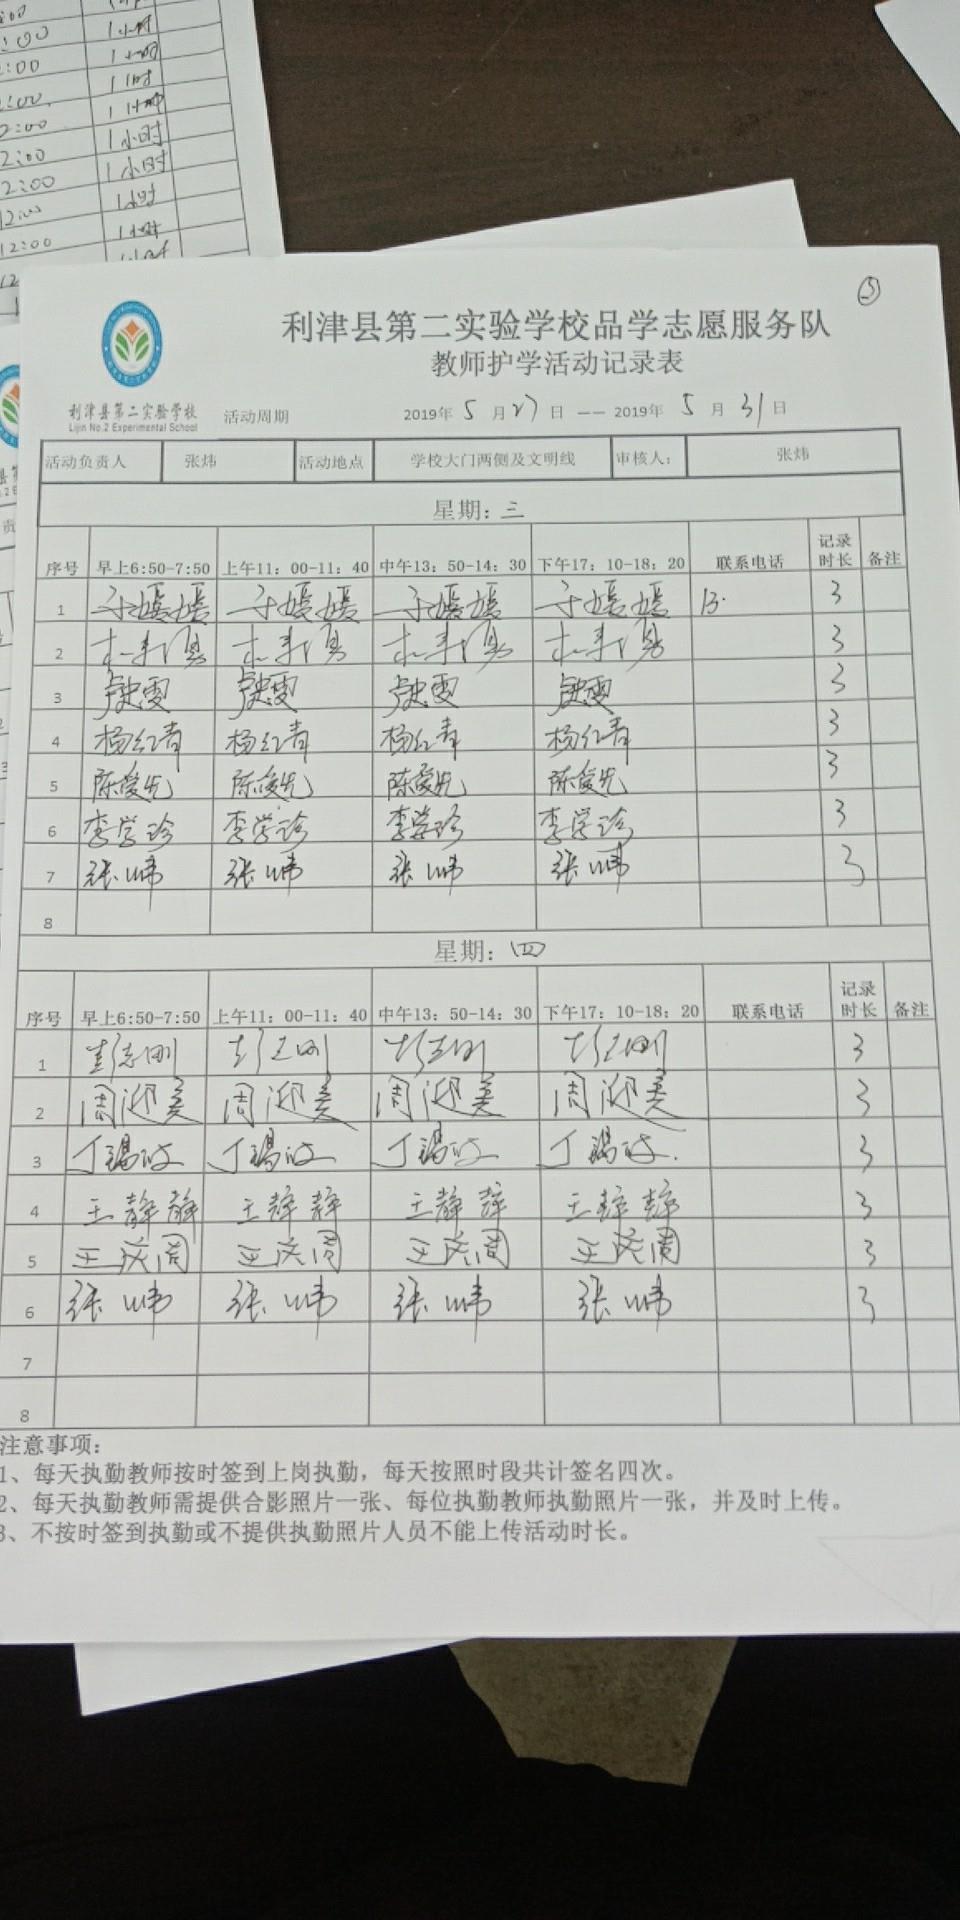 :00
1小时
2:00
1小时
2:00
1小时
2:00
1小时
2:00
1小时
2:00
1小时
12:00
1小时
12:00
1小时
12
③
利津县第二实验学校品学志愿服务队
教师护学活动记录表
利津县第二实验学校
Lijin No.2 Experimental School
活动周期 2019年 5 月 27 日 —— 2019年 5 月 31 日
活动负责人 张炜 活动地点 学校大门两侧及文明线 审核人: 张炜
星期: 三
序号 早上6:50-7:50 上午11: 00-11: 40 中午13: 50-14: 30 下午17: 10-18: 20 联系电话 记录时长 备注
1 于媛媛 于媛媛 于媛媛 于媛媛 13. 3
2 3
3 3
4 杨红青 杨红青 杨红青 杨红青 3
5 陈俊先 陈俊先 陈俊先 陈俊先 3
6 李学珍 李学珍 李学珍 李学珍 3
7 张炜 张炜 张炜 张炜 3
8
星期: 四
序号 早上6:50-7:50 上午11: 00-11: 40 中午13: 50-14: 30 下午17: 10-18: 20 联系电话 记录时长 备注
1 彭志刚 彭志刚 彭志刚 彭志刚 3
2 周迎美 周迎美 周迎美 周迎美 3
3 3
4 王静静 王静静 王静静 王静静 3
5 3
6 张炜 张炜 张炜 张炜 3
7
8
注意事项:
1、每天执勤教师按时签到上岗执勤，每天按照时段共计签名四次。
2、每天执勤教师需提供合影照片一张、每位执勤教师执勤照片一张，并及时上传。
3、不按时签到执勤或不提供执勤照片人员不能上传活动时长。